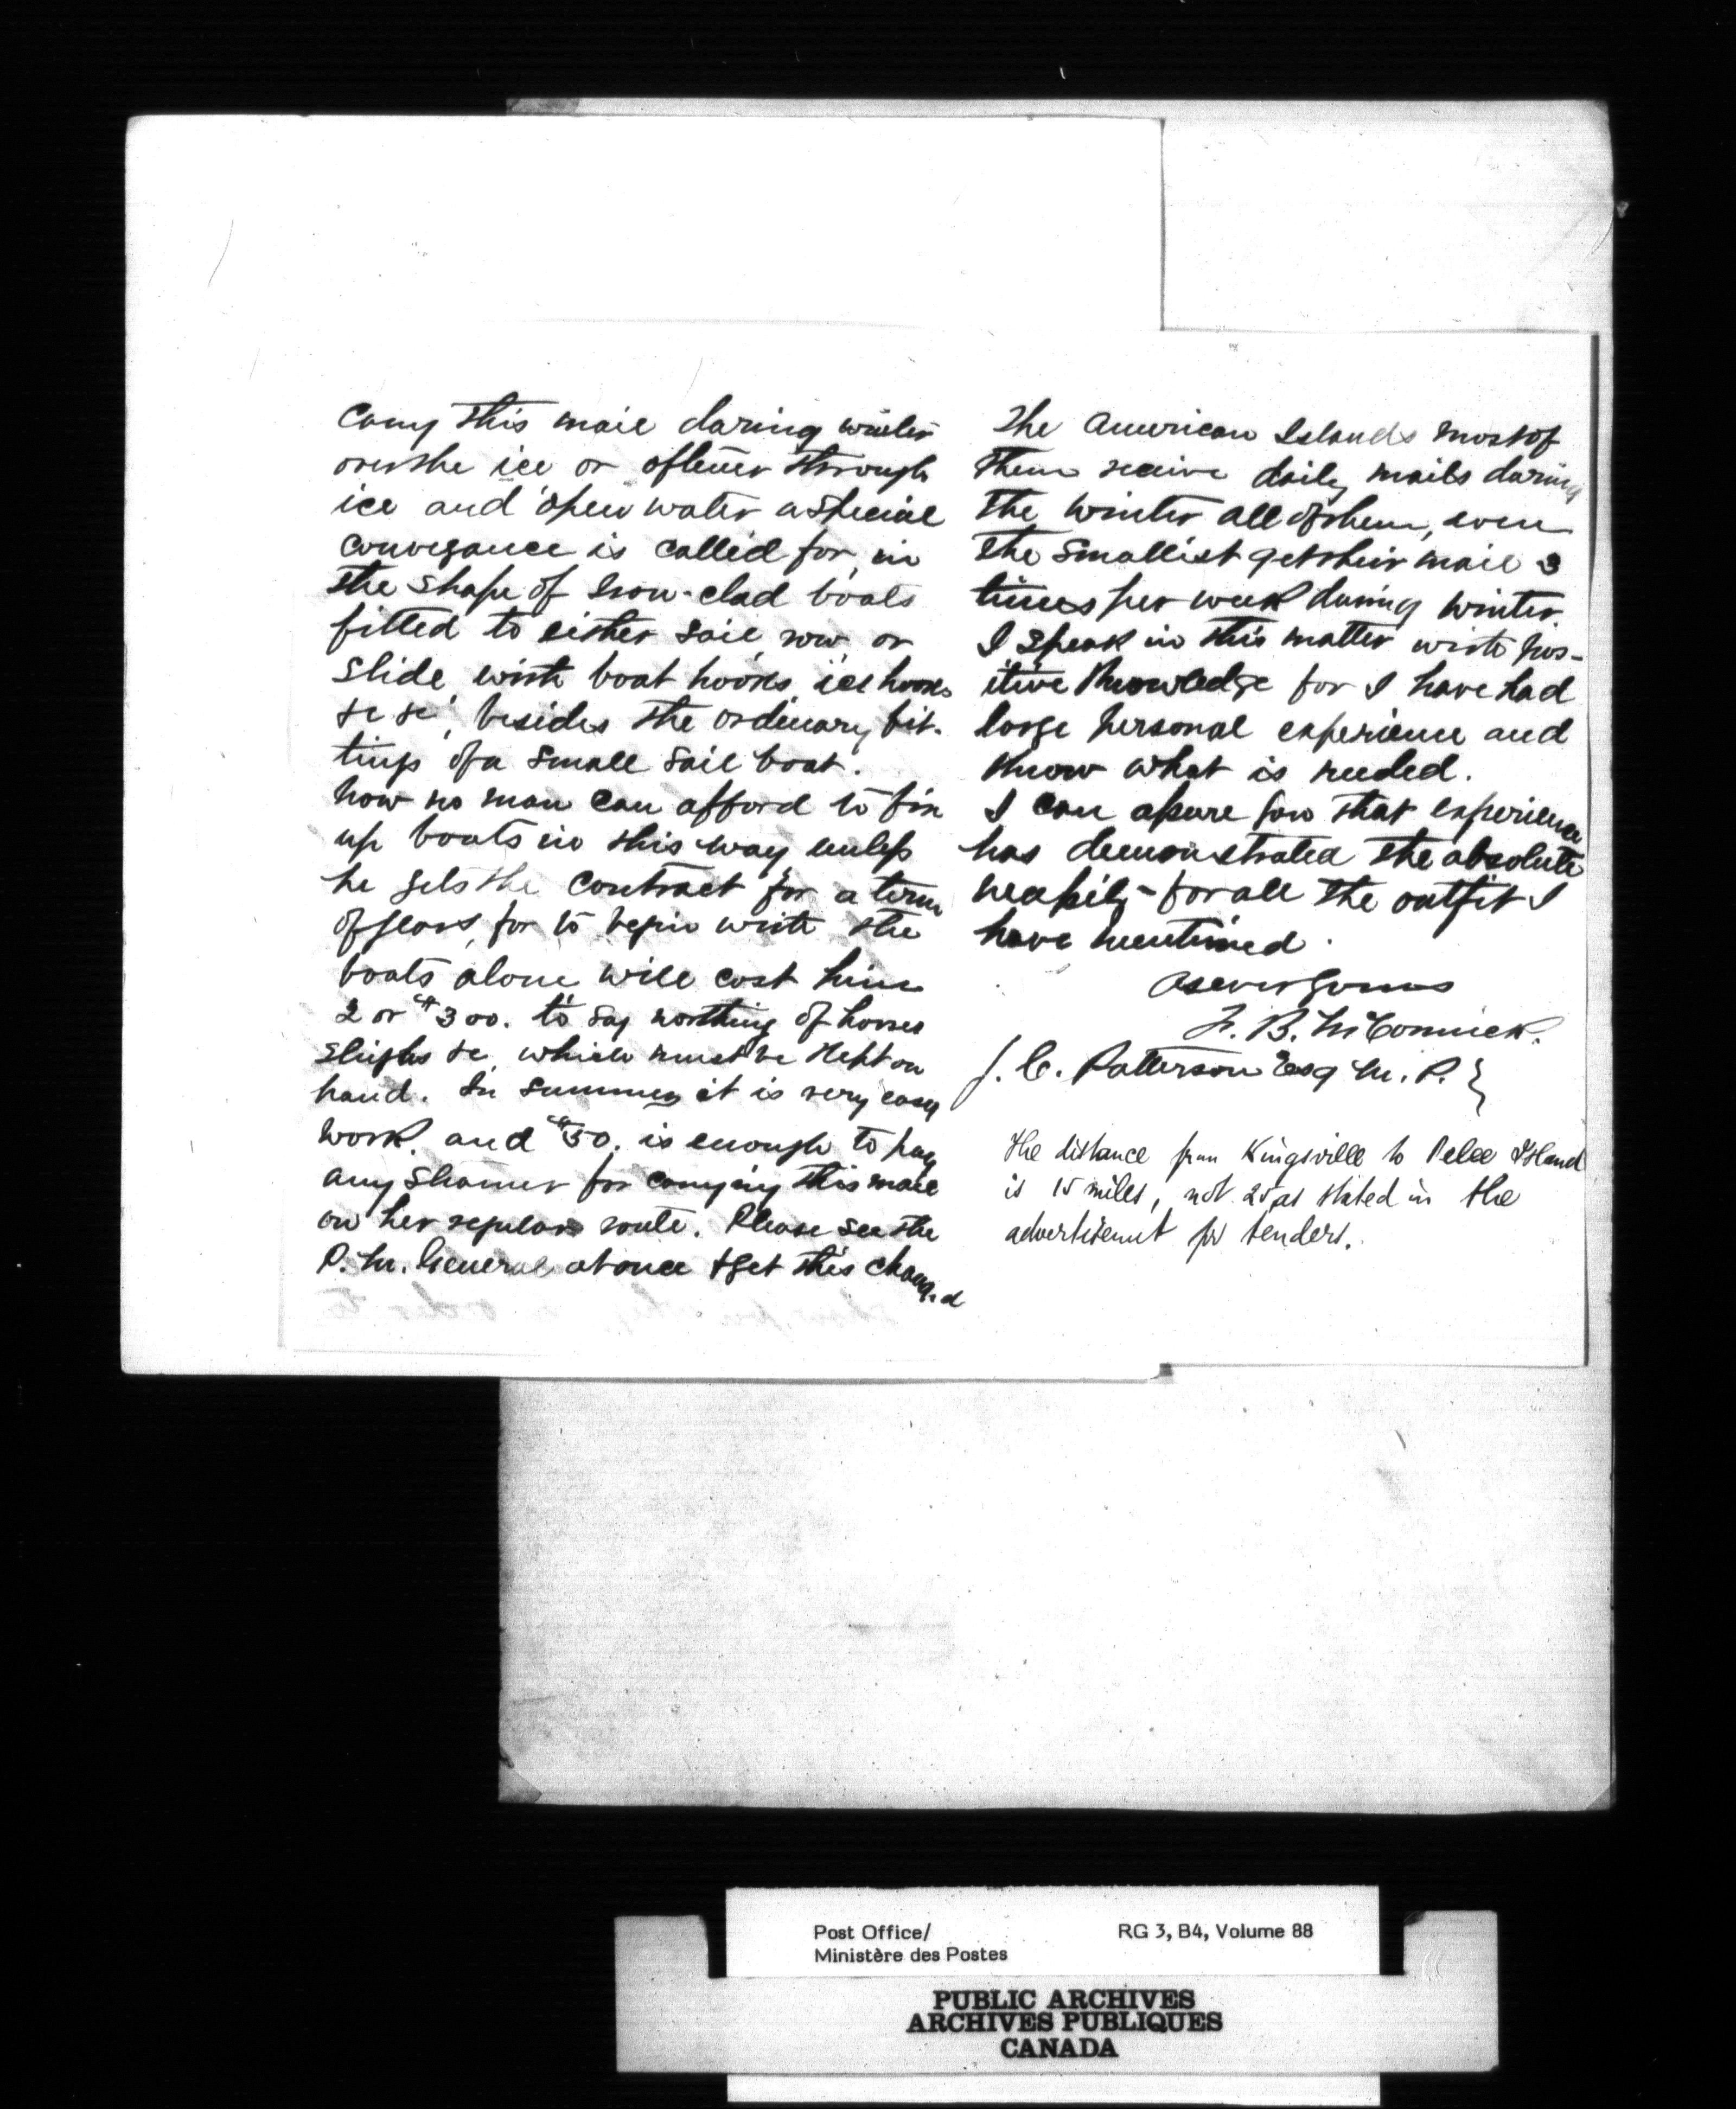 Carry this mail during winter
over the ice or oftener through
ice and open water a special
conveyance is called for, in
the shape of Iron-clad boats
fitted to either sail, row or
slide, with boat hooks, ice hooks
&c &c, besides the ordinary fit-
tings of a small sail boat.
now no man can afford to fix
up boats in this way unless
he gets the contract for a term
of years, for to begin with the
boats alone will cost him
2 or $300. to say nothing of horses
sleighs &c, which must be kept on
hand. In summer it is very easy
work. and $50. is enough to pay
any steamer for carrying this mail
on her regular route. Please see the
P. M. General at once & get this changed
The American Islands most of
them receive daily mails during
the winter all of them, even
the smallest get their mail 3
times per week during winter.
I speak in this matter with pos-
itive knowledge for I have had
large personal experience and
know what is needed.
I can assure you that experience
has demonstrated the absolute
necessity for all the outfit I
have mentioned.
As ever yours
F. B. McCormick.
J. C. Patterson Esq M. P. }
The distance from Kingsville to Pelee Island
is 15 miles, not 25 as stated in the
advertisement for tenders.
Post Office/ RG 3, B4, Volume 88
Ministère des Postes
PUBLIC ARCHIVES
ARCHIVES PUBLIQUES
CANADA